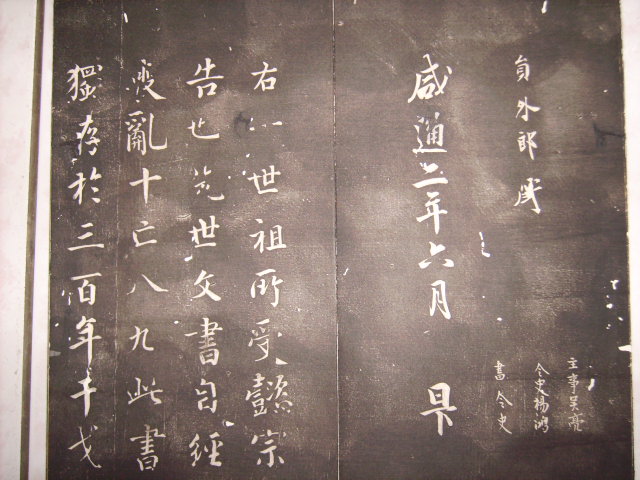 員外郎
主事吴亮
令史楊鴻
書令史
咸通二年六月 日下
右八世祖所受懿宗
告也先世文書自經
喪亂十亡八九此書
獨存於三百年干戈